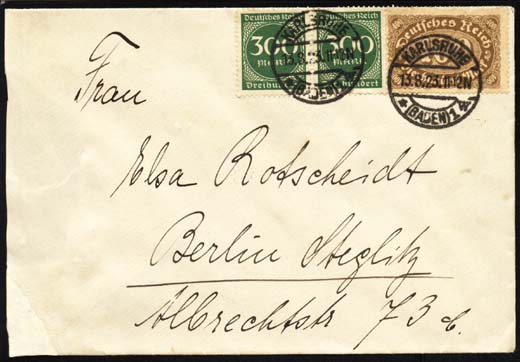 Deutsches Reich Deutsches Reich
300 300
Mark Mark
Deutsches Reich
400
KARLSRUHE
13.8.23.11-12N
(BADEN)
KARLSRUHE
13.8.23.11-12N
* (BADEN) 1 *
Frau
Elsa Rotscheidt
Berlin Steglitz
Albrechtstr 73 b.